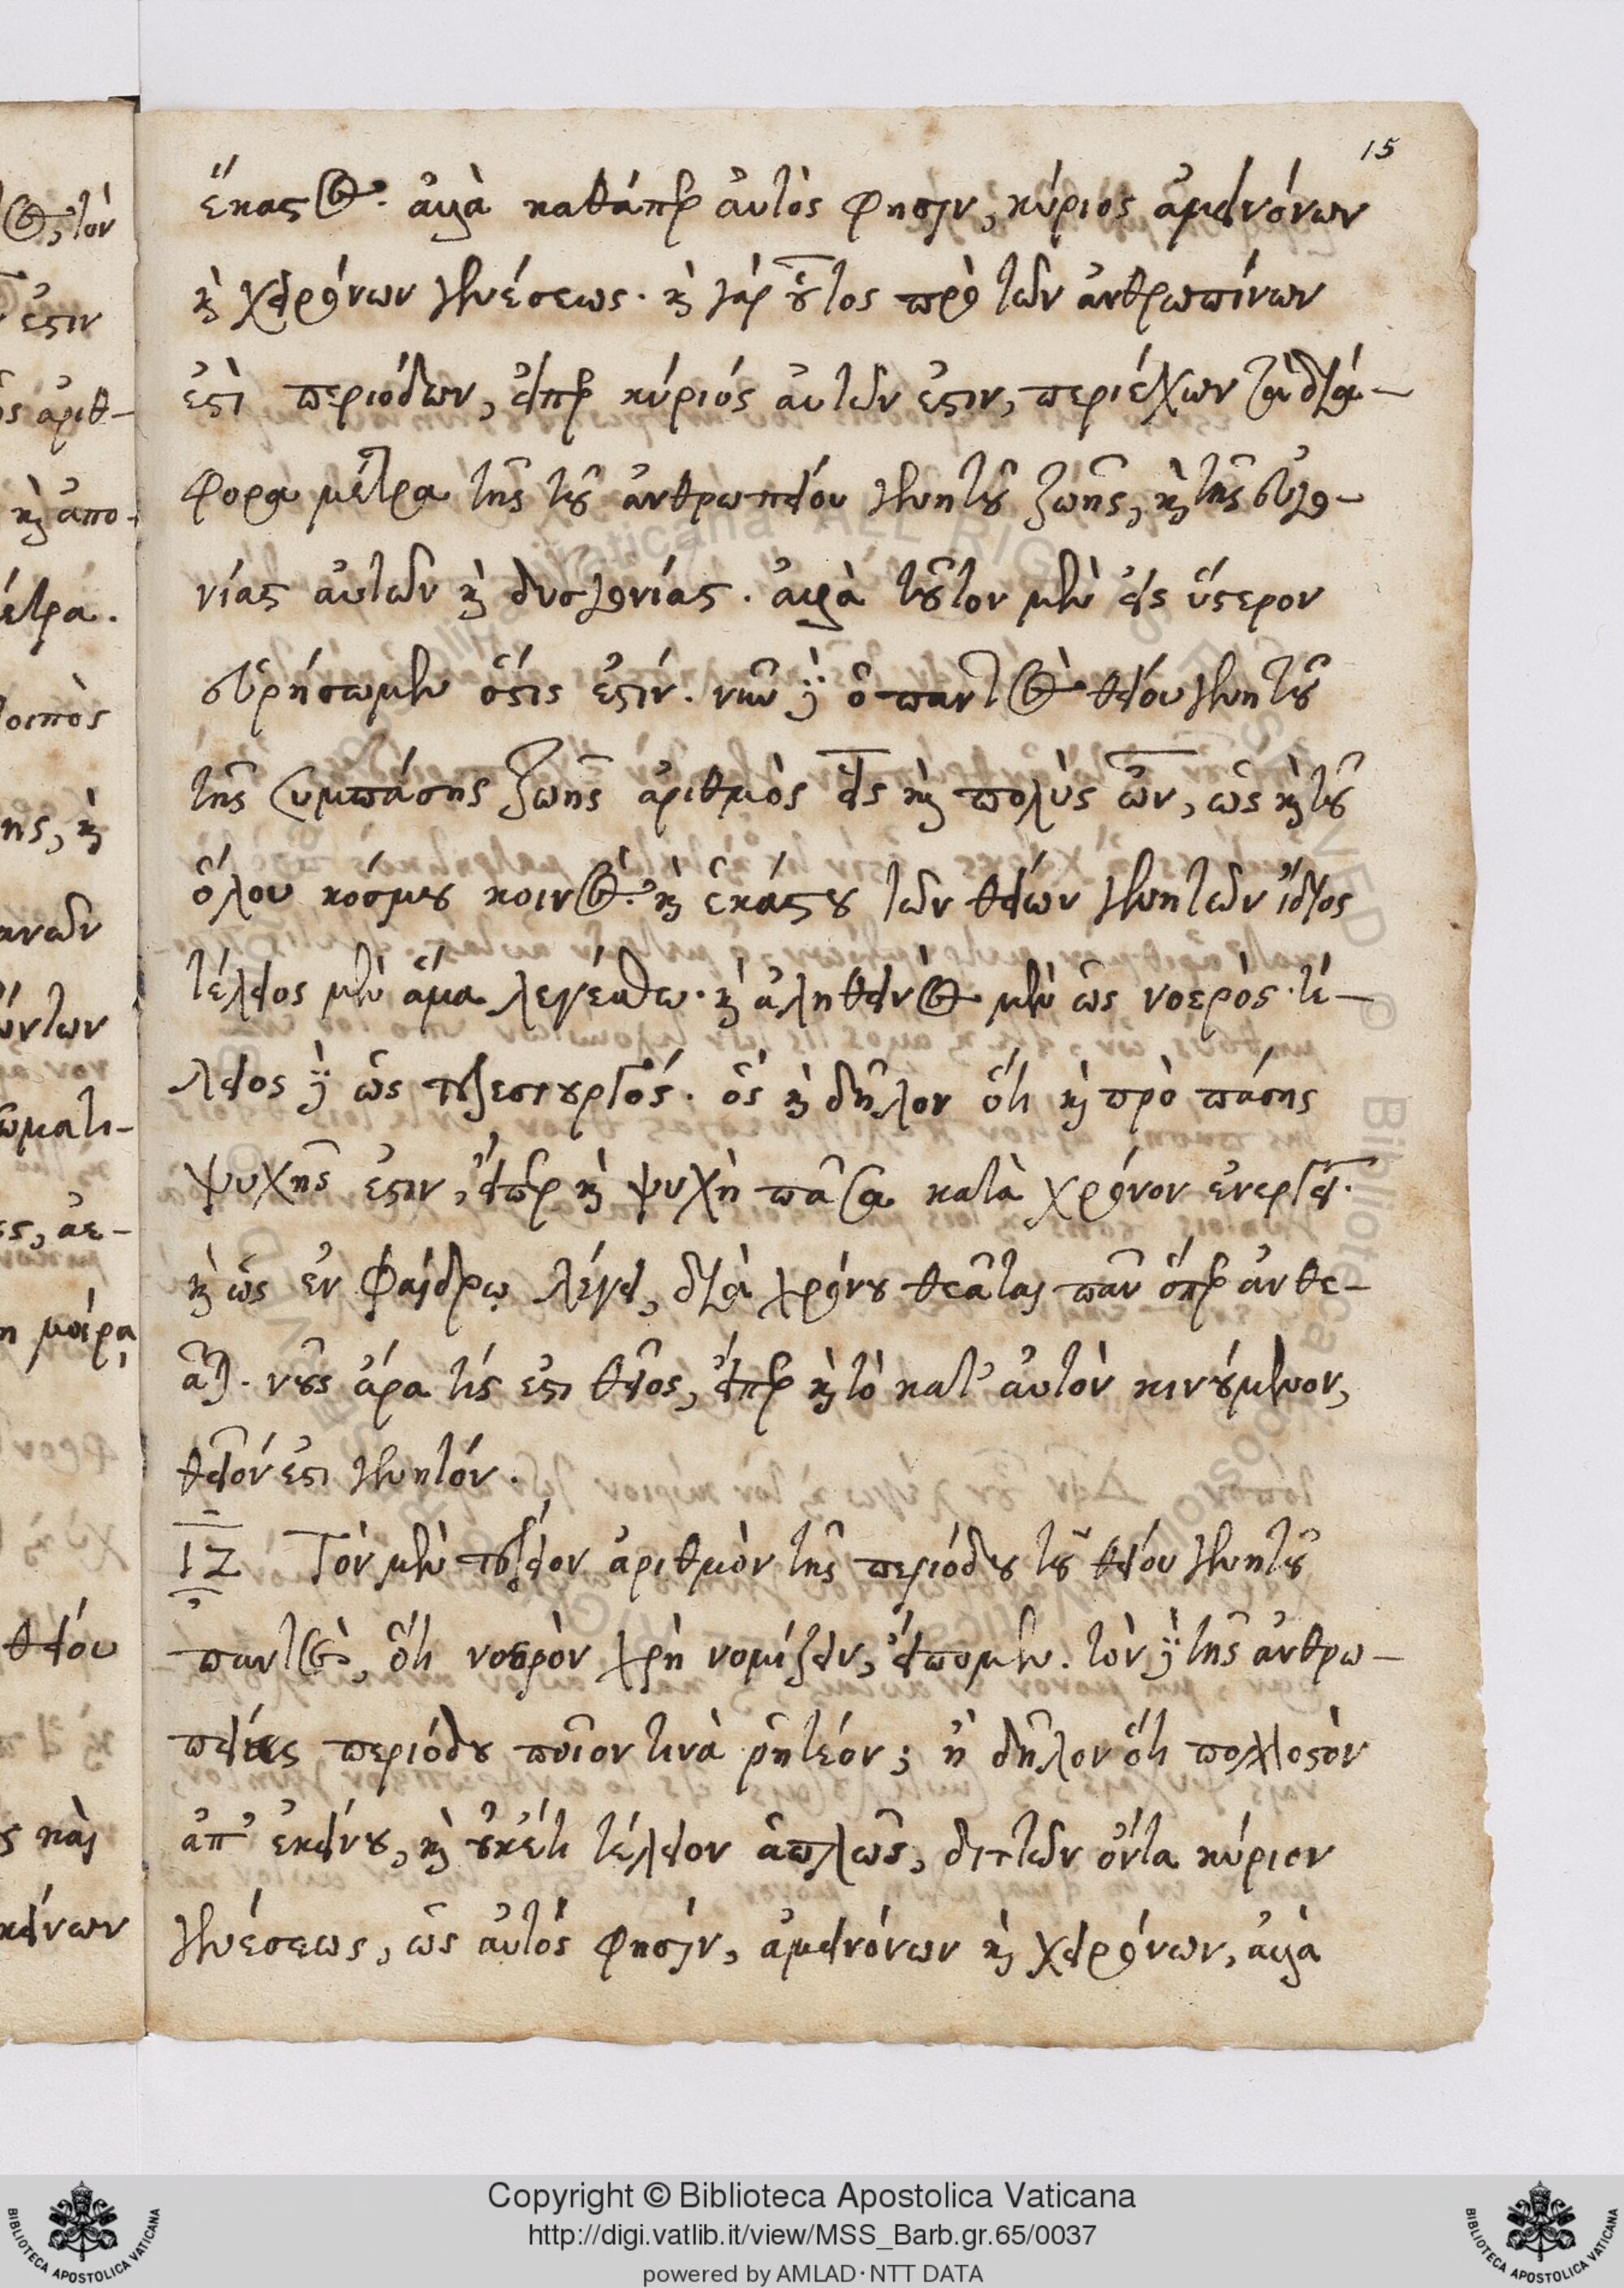 15
ἕκαστος. ἀλλὰ καθάπερ αὐτὸς φησὶν, κύριος ἀμεινόνων
καὶ χειρόνων γενέσεως. καὶ γὰρ οὗτος πρὸ τῶν ἀνθρωπίνων
ἐστὶ περιόδων, εἴπερ κύριός αὐτῶν ἐστιν, περιέχων τὰ διά-
φορα μέτρα τῆς τοῦ ἀνθρωπείου γεννητοῦ ζωῆς, καὶ τῆς εὐγο-
νίας αὐτῶν καὶ δυσγονίας. ἀλλὰ τοῦτον μὲν εἰς ὕστερον
εὑρήσωμεν ὅστις ἐστίν. νῦν δὲ ὁ παντὸς θείου γεννητοῦ
τῆς συμπάσης ζωῆς ἀριθμὸς εἷς καὶ πολὺς ὢν, ὡς καὶ τοῦ
ὅλου κόσμου κοινὸς. καὶ ἑκάστου τῶν θείων γεννητῶν ἴδιος
τέλειος μὲν ἅμα λεγέσθω. καὶ ἀληθινὸς μὲν ὡς νοερὸς. τέ-
λειος δὲ ὡς τελεσιουργός. ὃς καὶ δῆλον ὅτι καὶ πρὸ πάσης
ψυχῆς ἐστιν, εἴπερ καὶ ψυχὴ πᾶσα κατὰ χρόνον ἐνεργεῖ.
καὶ ὡς ἐν Φαίδρῳ λέγει, διὰ χρόνου θεᾶται πᾶν ὅπερ ἂν θε-
ᾶται. νοῦς ἄρα τίς ἐστι θεῖος, εἴπερ καὶ τὸ κατ' αὐτὸν κινούμενον,
θεῖόν ἐστι γεννητόν.
ΙΖ Τὸν μὲν τέλειον ἀριθμὸν τῆς περιόδου τοῦ θείου γεννητοῦ
παντὸς, ὅτι νοερὸν χρὴ νομίζειν, εἴπομεν. τὸν δὲ τῆς ἀνθρω-
πείας περιόδου ποῖον τινὰ ῥητέον; ἢ δῆλον ὅτι πολλοστὸν
ἀπ' ἐκείνου, καὶ οὐκέτι τέλειον ἁπλῶς, διττῶν ὄντα κύριον
γενέσεως, ὡς αὐτός φησὶν, ἀμεινόνων καὶ χειρόνων, ἀλλὰ
Copyright © Biblioteca Apostolica Vaticana
http://digi.vatlib.it/view/MSS_Barb.gr.65/0037
powered by AMLAD·NTT DATA
BIBLIOTECA APOSTOLICA VATICANA
BIBLIOTECA APOSTOLICA VATICANA